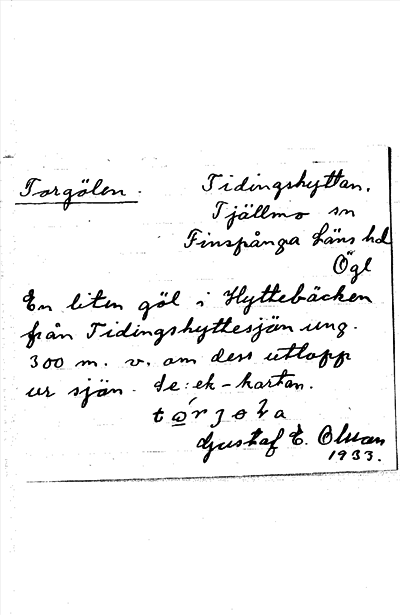 Torgölen.
Tidingshyttan,
Tjällmo sn
Finspånga läns hd
Ögl
En liten göl i Hyttebäcken
från Tidingshyttesjön ung.
300 m. v. om dess utlopp
ur sjön. Se: ek-kartan.
Gustaf E. Olsson
1933.